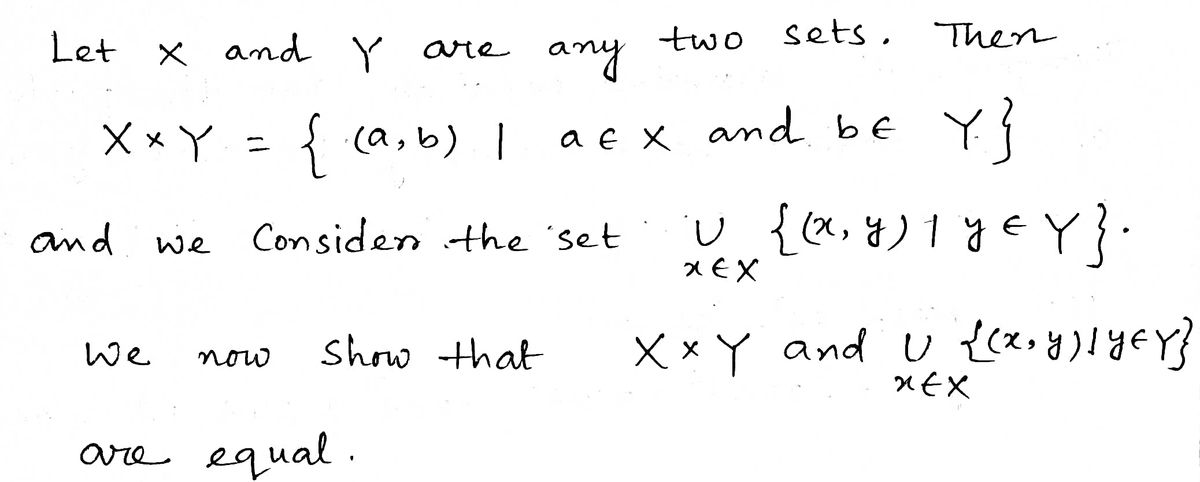 Let X and Y are any two sets. Then
X × Y = { (a, b) | a ∈ X and b ∈ Y }
and we Consider the set ∪ {(x, y) | y ∈ Y}.
x ∈ X
We now Show that X × Y and ∪ {(x, y) | y ∈ Y}
x ∈ X
are equal.